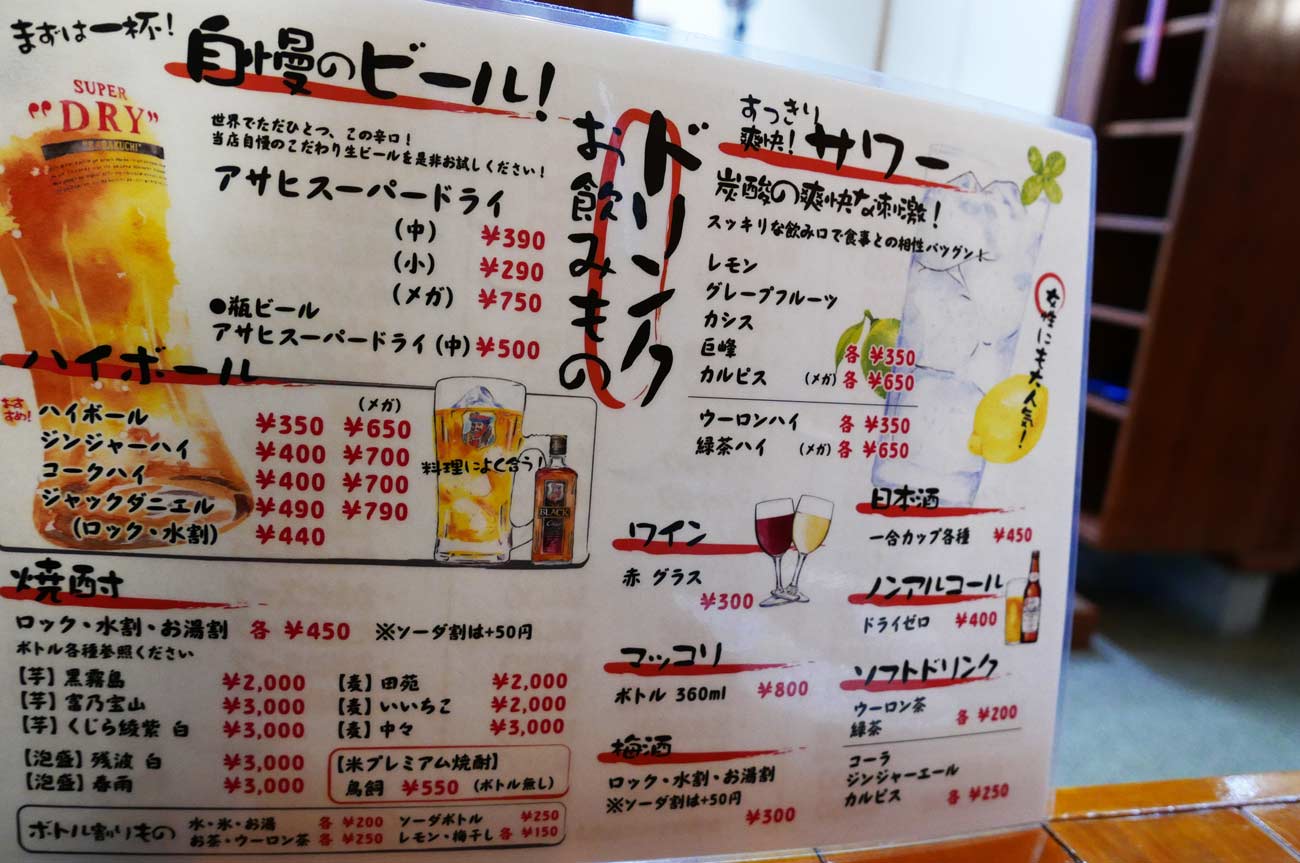 まずは一杯!
自慢のビール!
SUPER
"DRY"
世界でただひとつ、この辛口!
当店自慢のこだわり生ビールを是非お試しください!
アサヒスーパードライ
(中) ¥390
(小) ¥290
(メガ) ¥750
●瓶ビール
アサヒスーパードライ(中) ¥500
ドリンク
お飲みもの
ハイボール
おすすめ!
(メガ)
ハイボール ¥350 ¥650
ジンジャーハイ ¥400 ¥700
コークハイ ¥400 ¥700
ジャックダニエル ¥490 ¥790
(ロック・水割) ¥440
料理によく合う!
BLACK
焼酎
ロック・水割・お湯割 各 ¥450 ※ソーダ割は+50円
ボトル各種参照ください
【芋】黒霧島 ¥2,000
【芋】富乃宝山 ¥3,000
【芋】くじら綾紫 白 ¥3,000
【泡盛】残波 白 ¥3,000
【泡盛】春雨 ¥3,000
【麦】田苑 ¥2,000
【麦】いいちこ ¥2,000
【麦】中々 ¥3,000
【米プレミアム焼酎】
鳥飼 ¥550 (ボトル無し)
ボトル割りもの
水・氷・お湯 各 ¥200 ソーダボトル ¥250
お茶・ウーロン茶 各 ¥250 レモン・梅干し 各 ¥150
すっきり
爽快! サワー
炭酸の爽快な刺激!
スッキリな飲み口で食事との相性バツグン!
レモン
グレープフルーツ
カシス
巨峰 各 ¥350
カルピス (メガ) 各 ¥650
ウーロンハイ 各 ¥350
緑茶ハイ (メガ) 各 ¥650
女性にも大人気!
ワイン
赤 グラス
¥300
マッコリ
ボトル 360ml ¥800
梅酒
ロック・水割・お湯割
※ソーダ割は+50円
¥300
日本酒
一合カップ各種 ¥450
ノンアルコール
ドライゼロ ¥400
ソフトドリンク
ウーロン茶
緑茶 各 ¥200
コーラ
ジンジャーエール
カルピス 各 ¥250